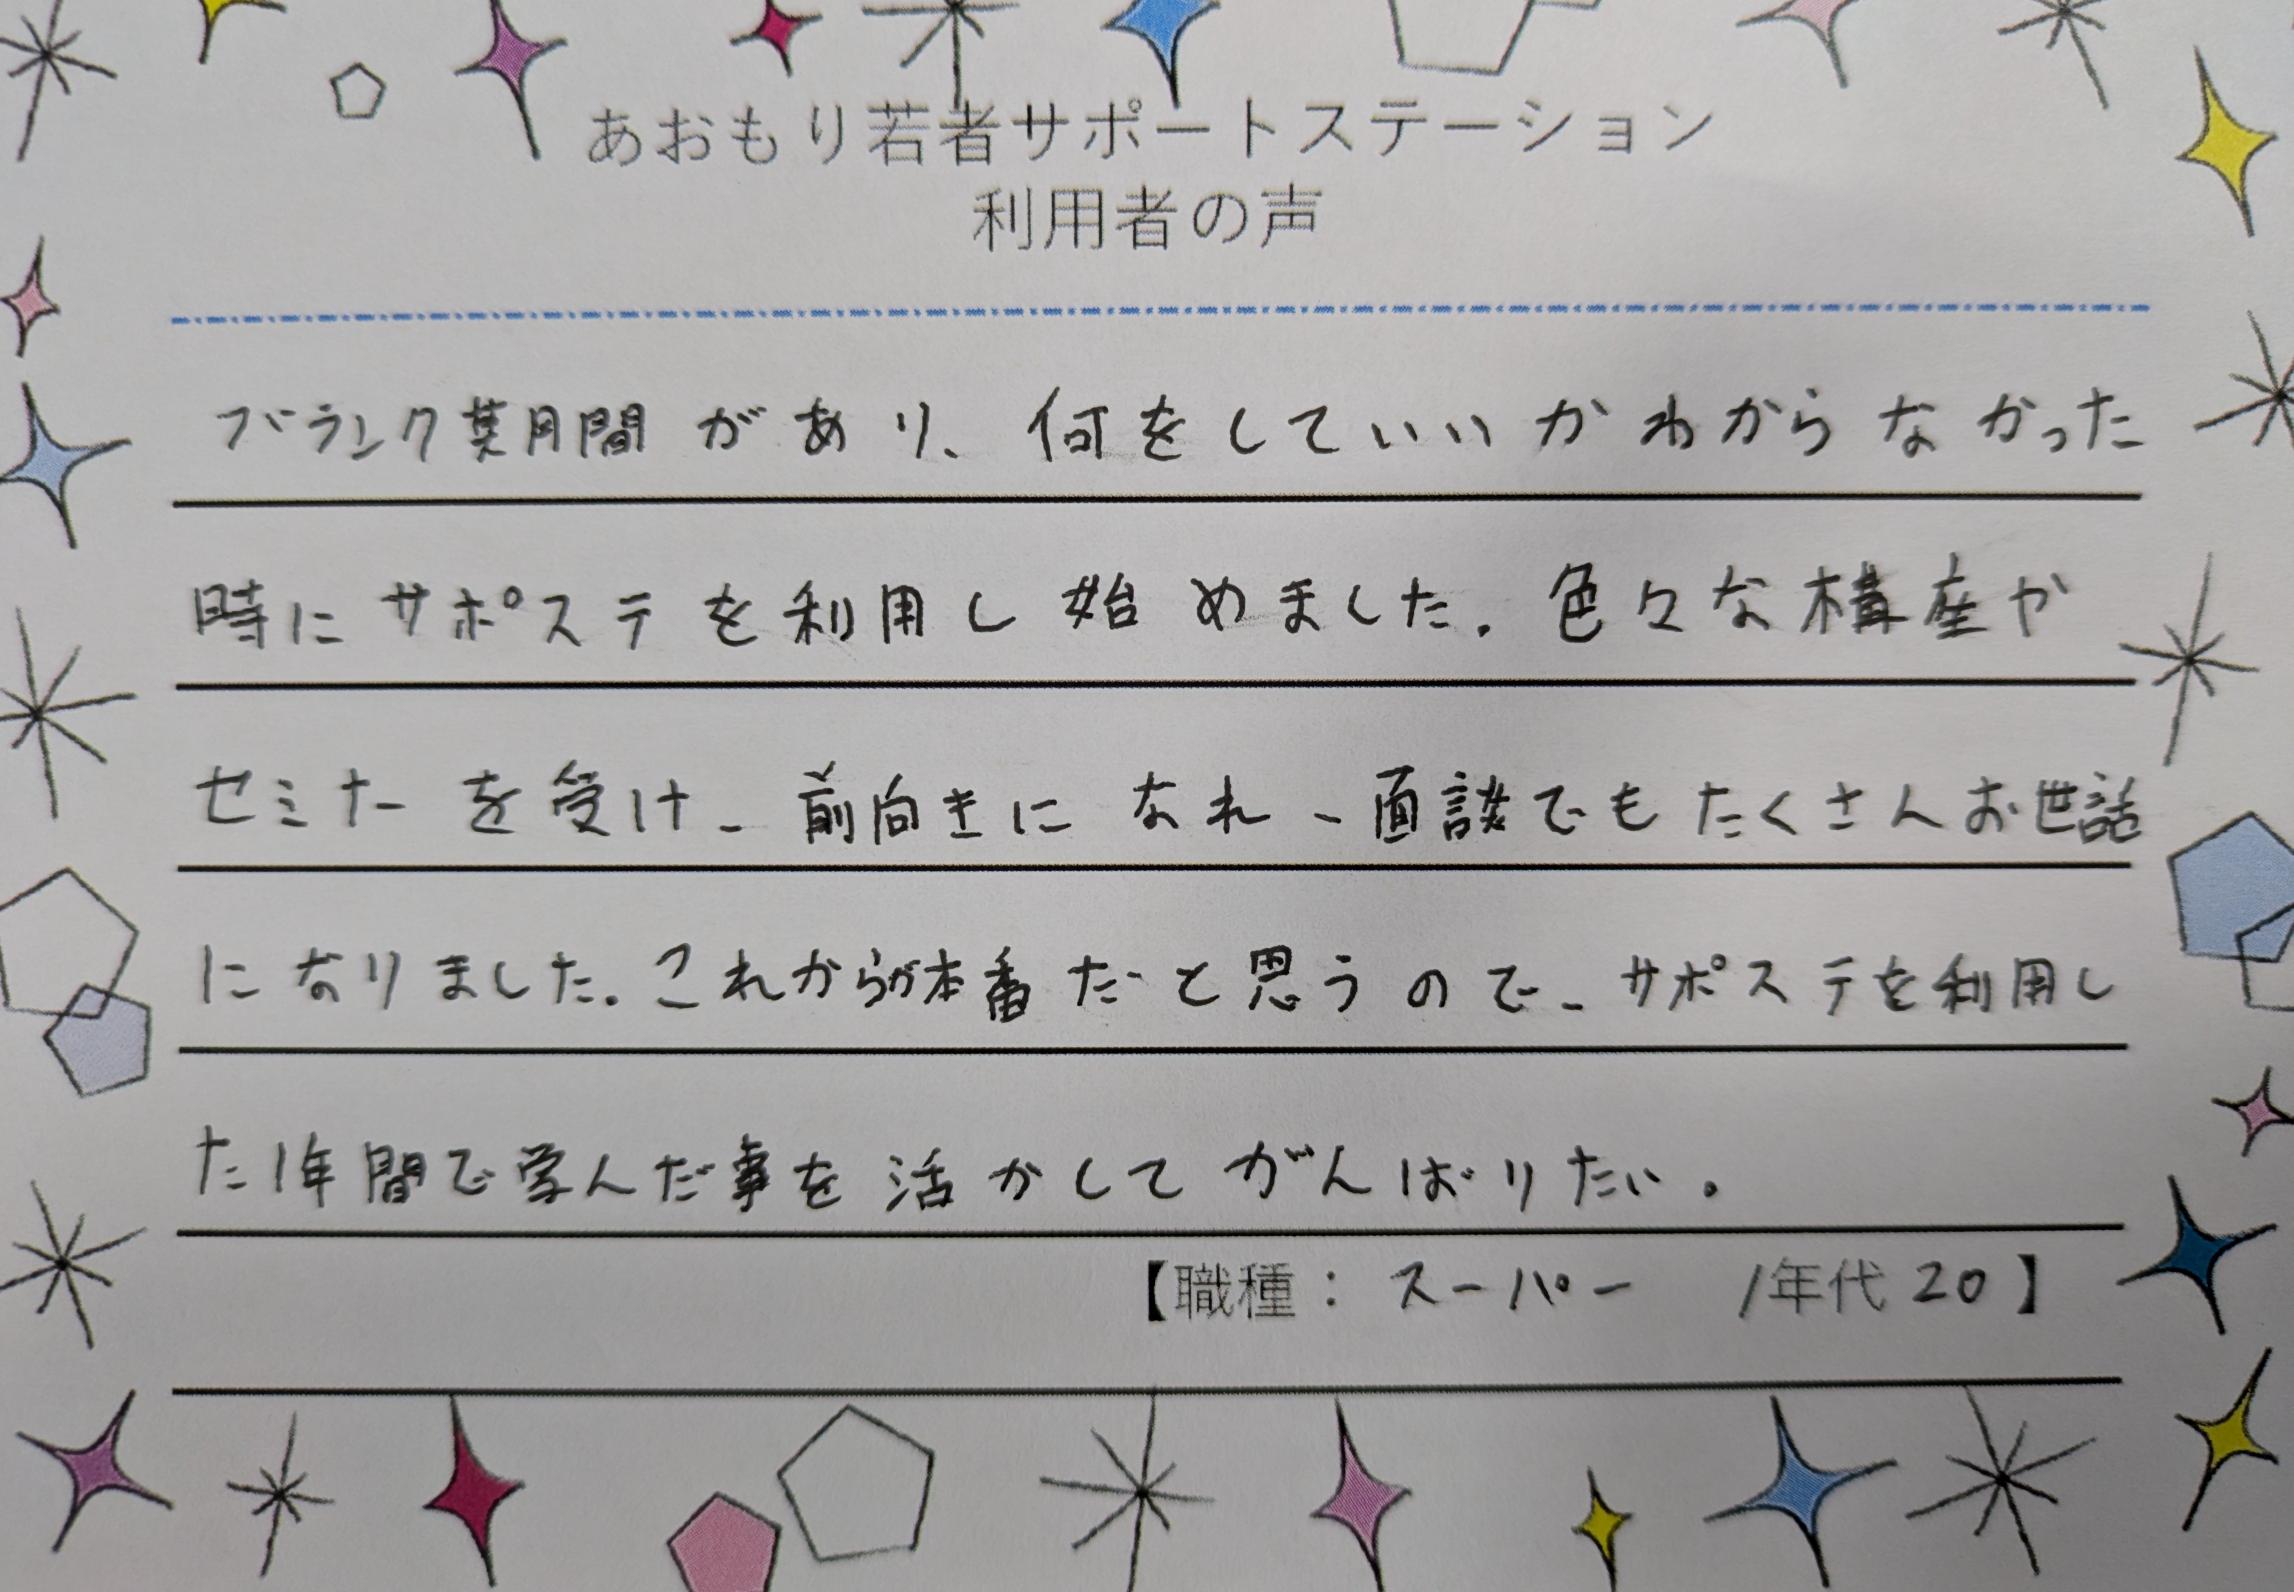 あおもり若者サポートステーション
利用者の声
ブランク期間があり、何をしていいかわからなかった
時にサポステを利用し始めました。色々な構座や
セミナーを受け、前向きになれ、面談でもたくさんお世話
になりました。これからが本番だと思うので、サポステを利用し
た1年間で学んだ事を活かしてがんばりたい。
【職種：スーパー /年代20】